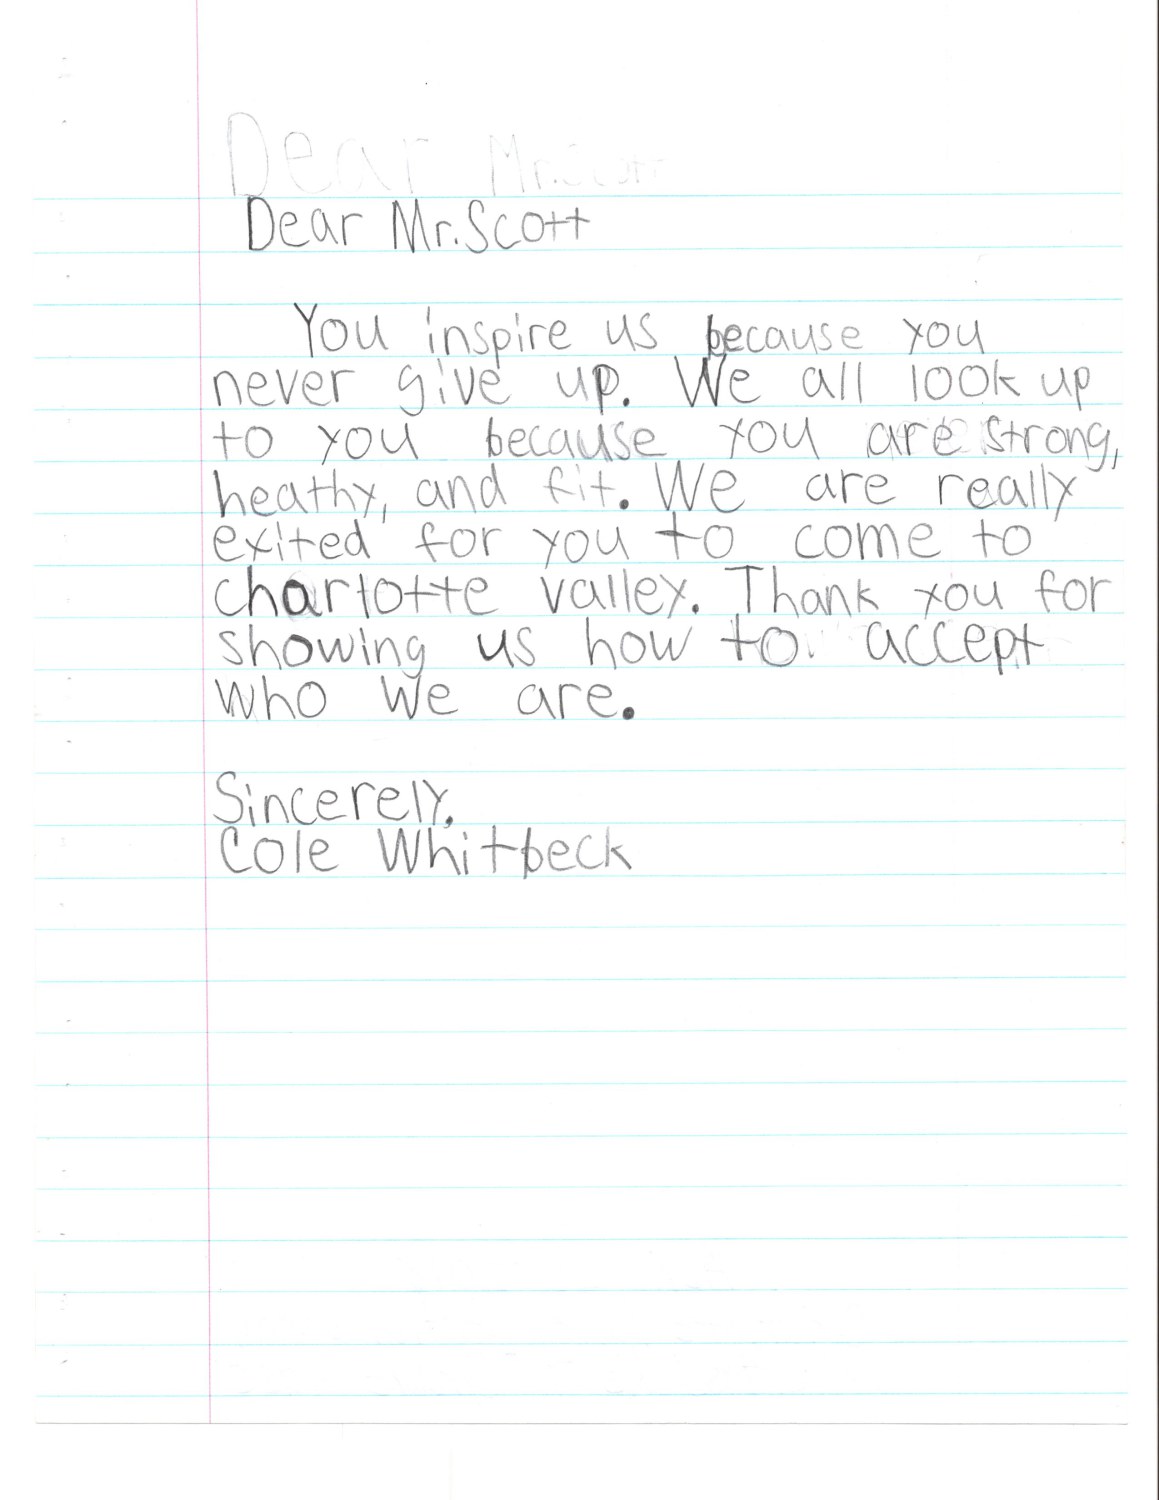 Dear Mr.Scott
Dear Mr.Scott
You inspire us because you
never give up. We all look up
to you because you are strong,
heathy, and fit. We are really
exited for you to come to
charlotte valley. Thank you for
showing us how to accept
who we are.
Sincerely,
Cole Whitbeck